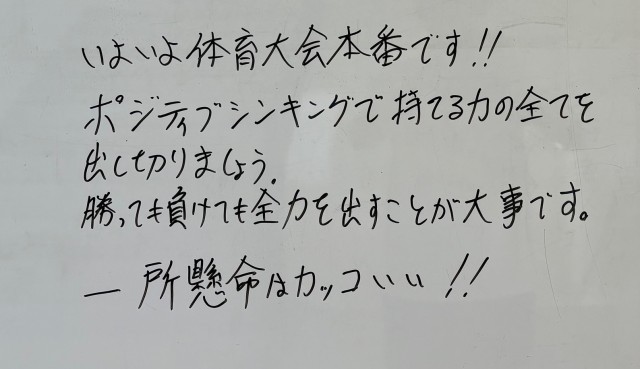 いよいよ体育大会本番です!!
ポジティブシンキングで持てる力の全てを
出し切りましょう。
勝っても負けても全力を出すことが大事です。
一所懸命はカッコいい!!